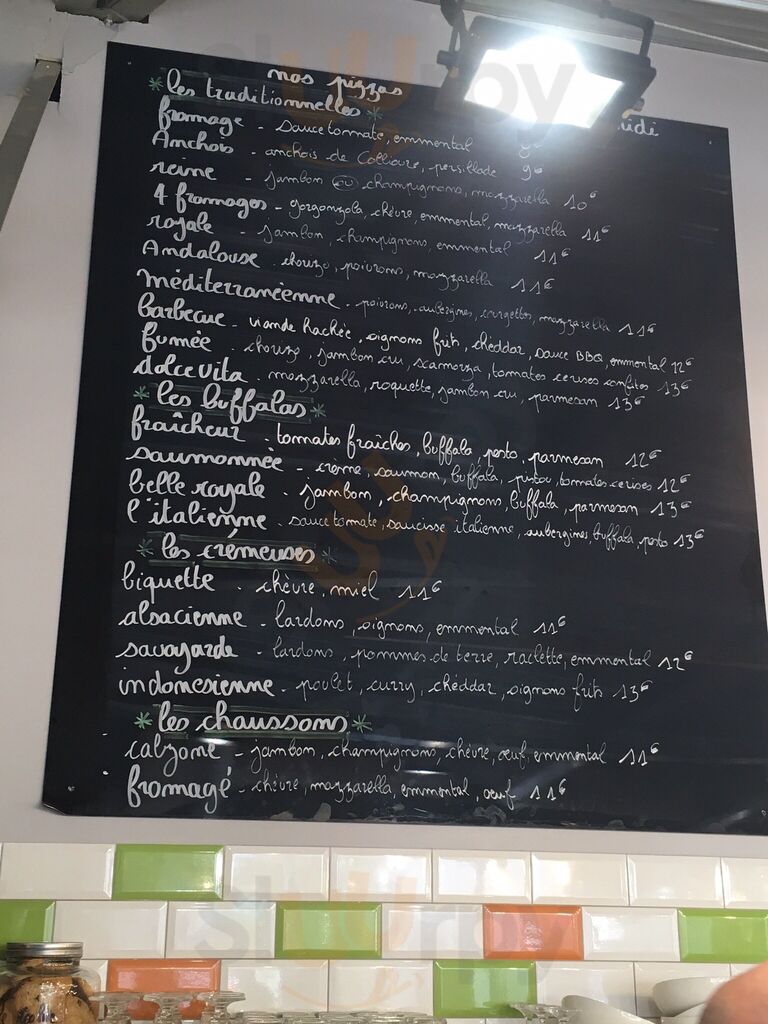 nos pizzas
* les traditionnelles *
idi
fromage - sauce tomate, emmental 9€
Anchois - anchois de Collioure, persillade 9€
reine - jambon ou champignons, mozzarella 10€
4 fromages - gorgonzola, chèvre, emmental, mozzarella 11€
royale - jambon, champignons, emmental 11€
Andalouse - chorizo, poivrons, mozzarella 11€
méditerranéenne - poivrons, aubergines, courgettes, mozzarella 11€
barbecue - viande hachée, oignons frits, cheddar, sauce BBQ, emmental 12€
fumée - chorizo, jambon cru, scamorza, tomates cerises confites 13€
dolce vita - mozzarella, roquette, jambon cru, parmesan 13€
* les buffalas *
fraîcheur - tomates fraîches, buffala, pesto, parmesan 12€
saumonnée - crème, saumon, buffala, pistou, tomates cerises 12€
belle royale - jambon, champignons, buffala, parmesan 13€
l'italienne - sauce tomate, saucisse italienne, aubergines, buffala, pesto 13€
* les crémeuses *
biquette - chèvre, miel 11€
alsacienne - lardons, oignons, emmental 11€
savoyarde - lardons, pommes de terre, raclette, emmental 12€
indonesienne - poulet, curry, chéddar, oignons frits 13€
* les chaussons *
calzone - jambon, champignons, chèvre, œuf, emmental 11€
fromagé - chèvre, mozzarella, emmental, œuf 11€
sluurpy
sluurpy